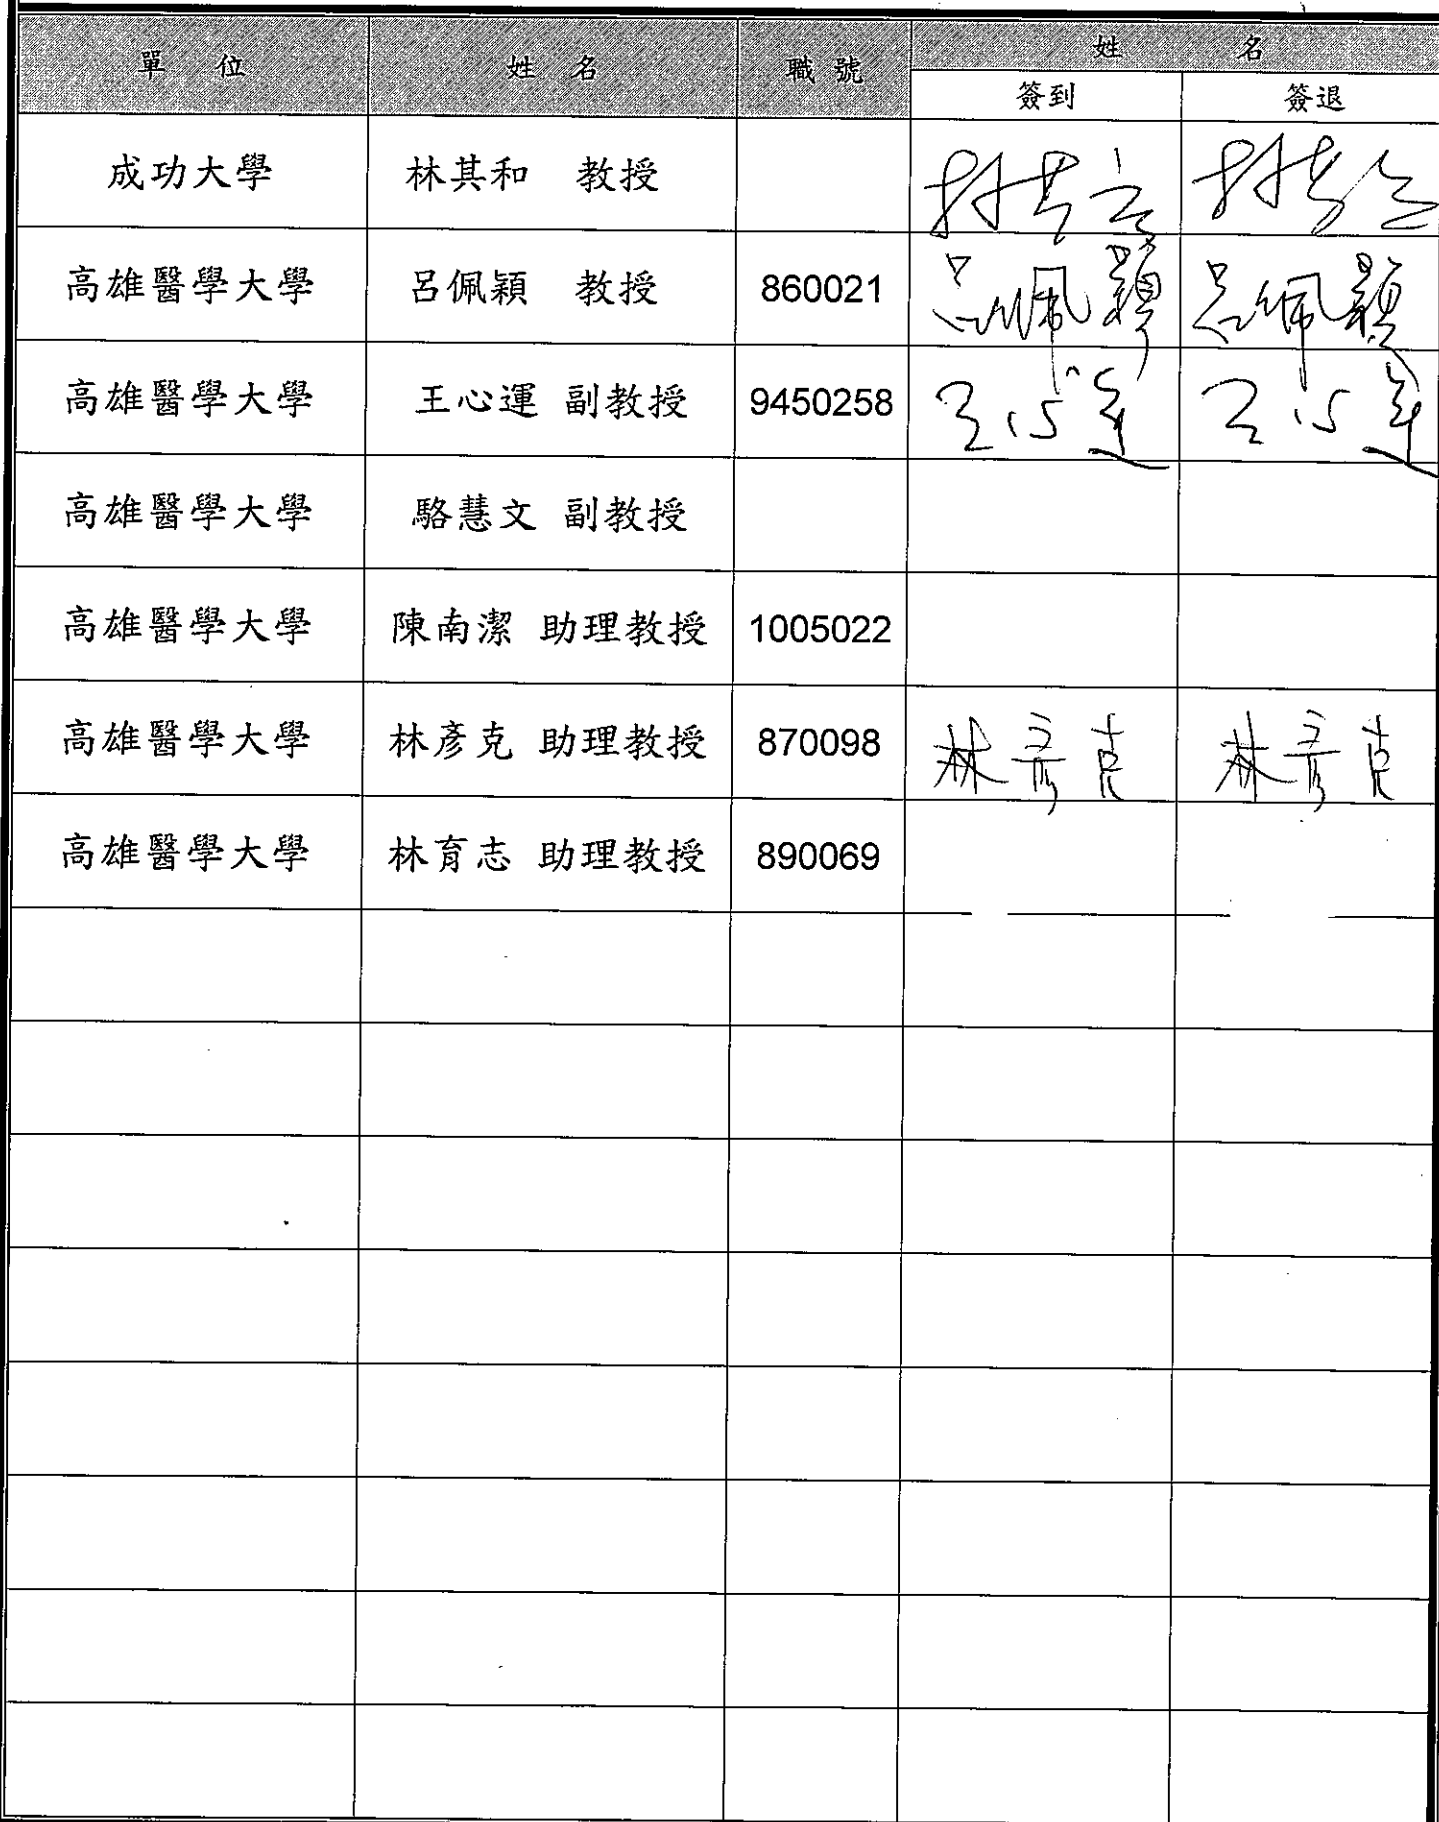 單 位 姓 名 職 號 姓 名
簽到 簽退
成功大學 林其和 教授 林其和 林其和
高雄醫學大學 呂佩穎 教授 860021 呂佩穎 呂佩穎
高雄醫學大學 王心運 副教授 9450258 王心運 王心運
高雄醫學大學 駱慧文 副教授
高雄醫學大學 陳南潔 助理教授 1005022
高雄醫學大學 林彥克 助理教授 870098 林彥克 林彥克
高雄醫學大學 林育志 助理教授 890069